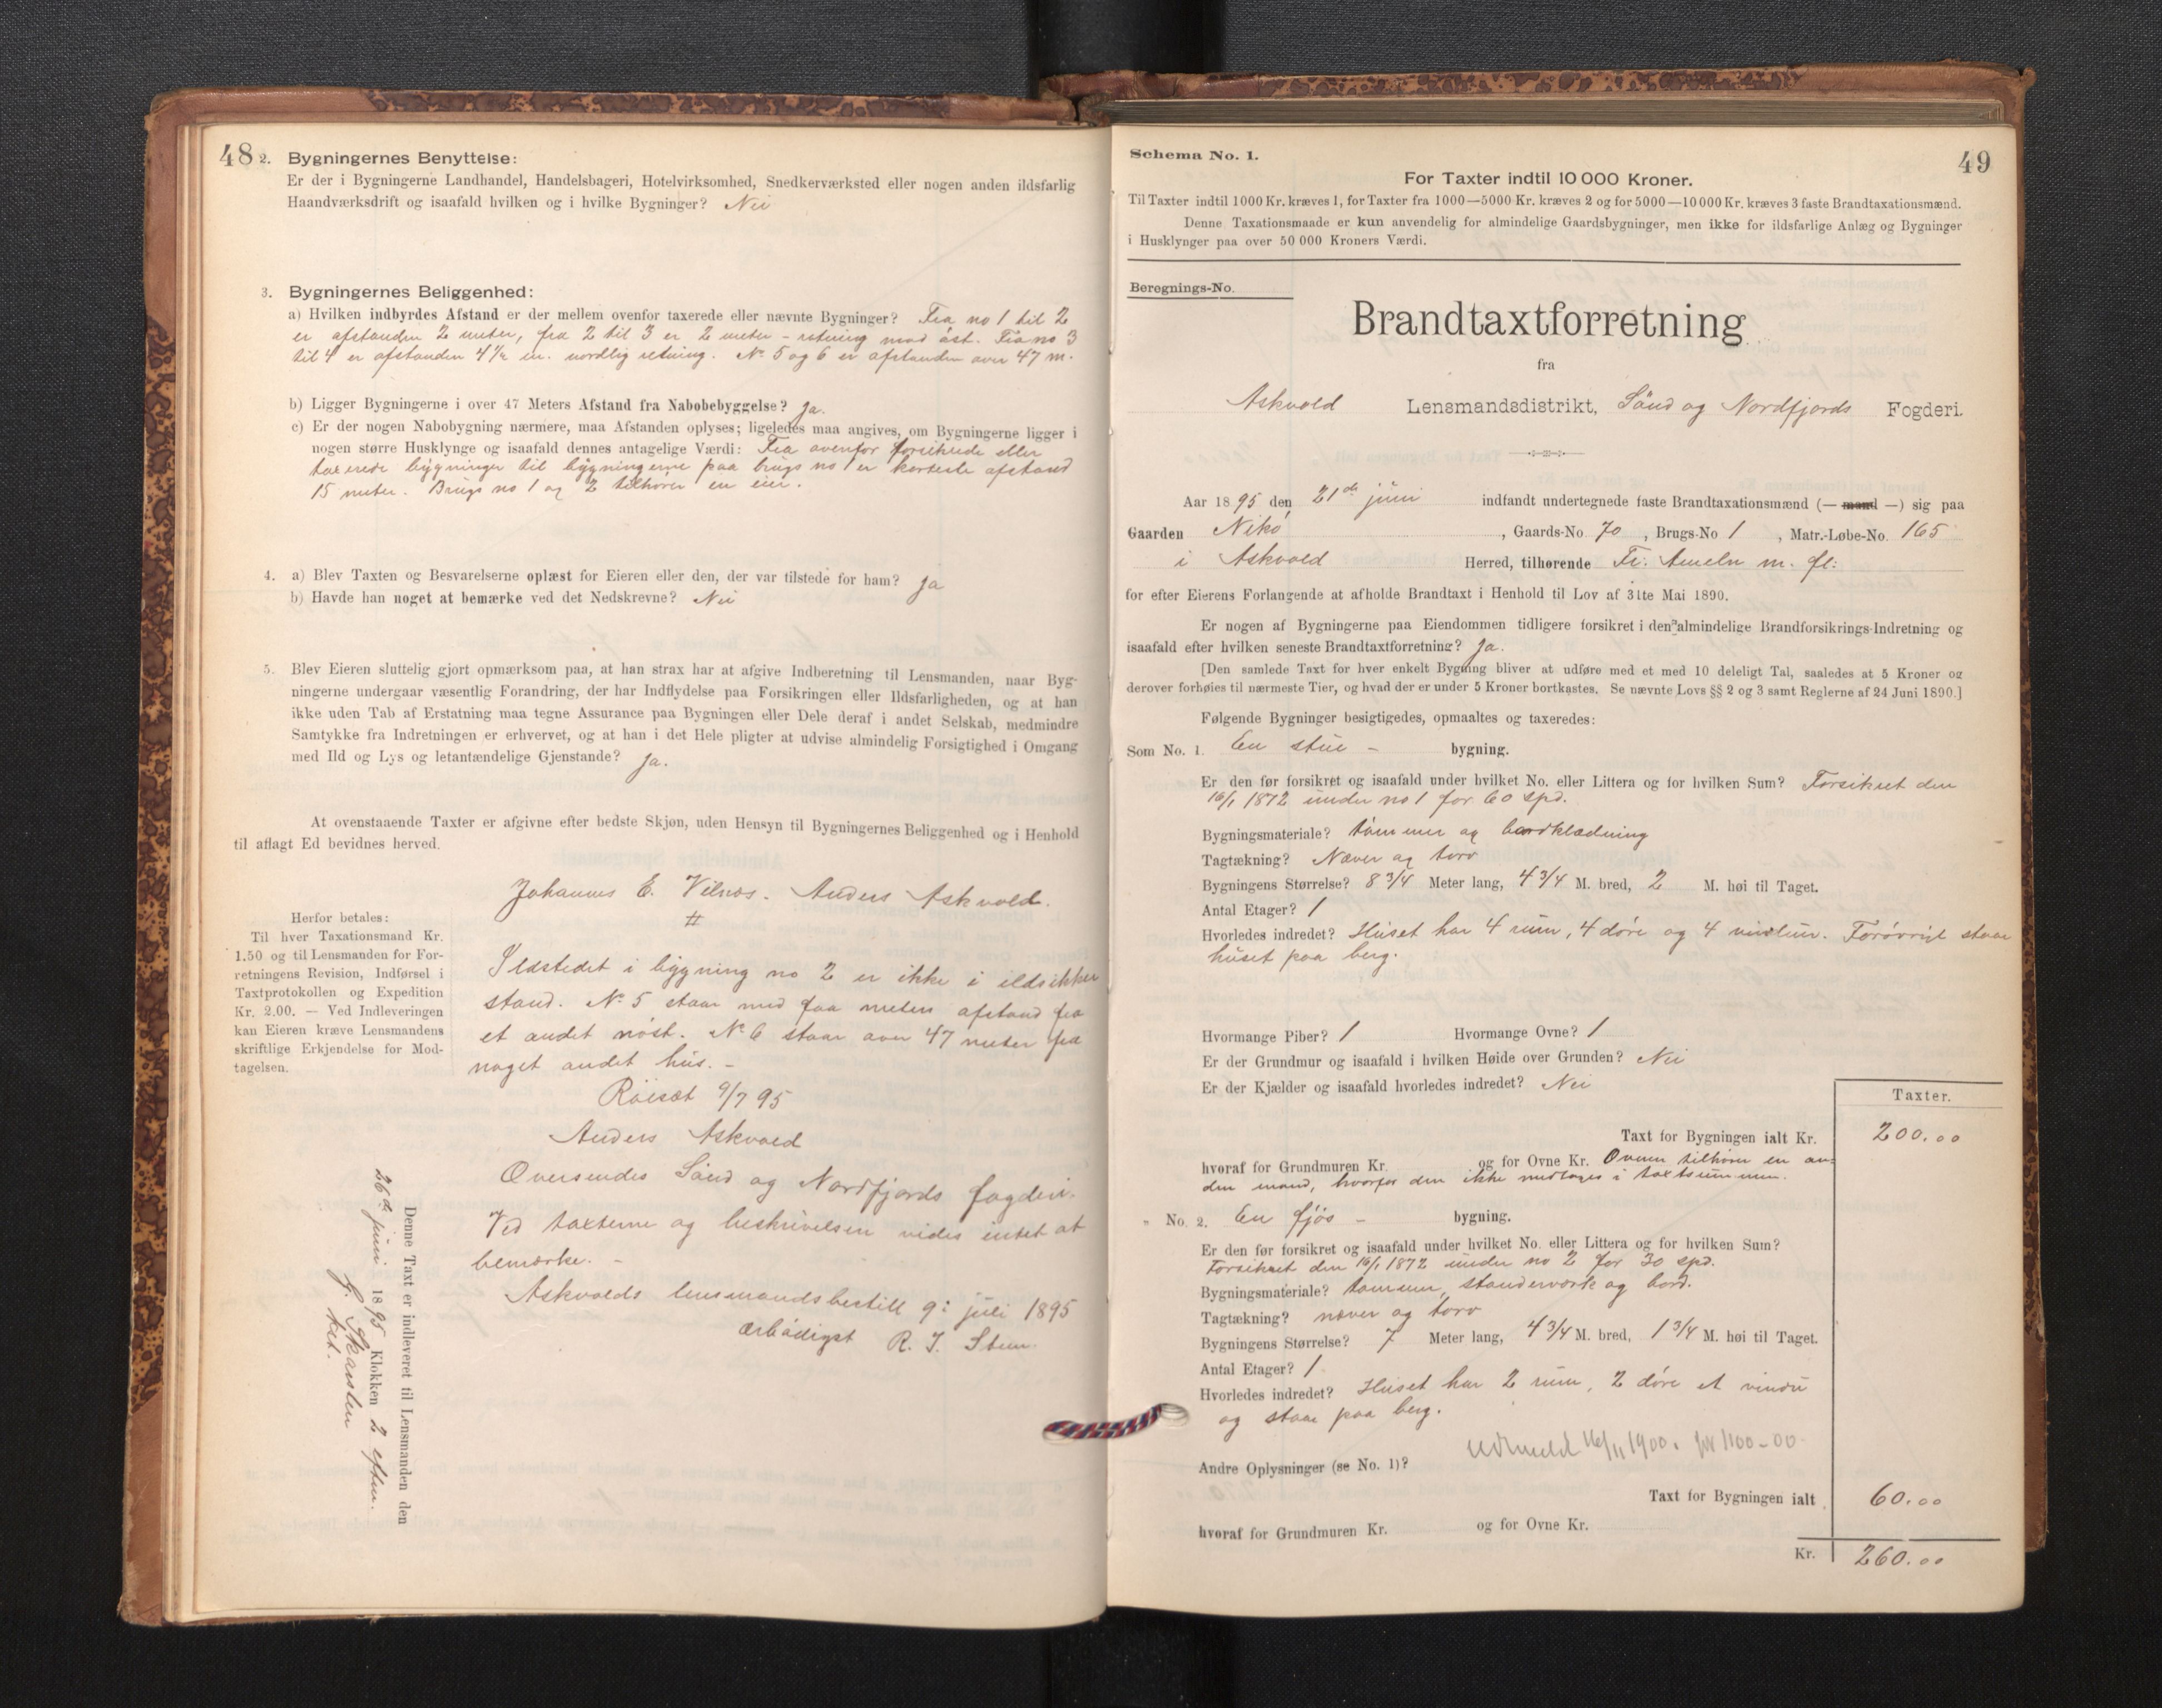 48
2. Bygningernes Benyttelse:
Er der i Bygningerne Landhandel, Handelsbageri, Hotelvirksomhed, Snedkerværksted eller nogen anden ildsfarlig
Haandværksdrift og isaafald hvilken og i hvilke Bygninger? Nei
3. Bygningernes Beliggenhed:
a) Hvilken indbyrdes Afstand er der mellem ovenfor taxerede eller nævnte Bygninger? Fra no 1 til 2
er afstanden 2 meter, fra 2 til 3 er 2 meter - retning mod øst. Fra no 3
til 4 er afstanden 4½ m. nordlig retning. No 5 og 6 er afstanden over 47 m.
b) Ligger Bygningerne i over 47 Meters Afstand fra Nabobebyggelse? Ja.
c) Er der nogen Nabobygning nærmere, maa Afstanden oplyses; ligeledes maa angives, om Bygningerne ligger i
nogen større Husklynge og isaafald dennes antagelige Værdi: Fra ovenfor forsikrede eller
taxerede bygninger til bygningerne paa brugs no 1 er korteste afstand
15 meter. Brugs no 1 og 2 tilhører en eier.
4. a) Blev Taxten og Besvarelserne oplæst for Eieren eller den, der var tilstede for ham? Ja
b) Havde han noget at bemærke ved det Nedskrevne? Nei
5. Blev Eieren sluttelig gjort opmærksom paa, at han strax har at afgive Indberetning til Lensmanden, naar Byg-
ningerne undergaar væsentlig Forandring, der har Indflydelse paa Forsikringen eller Ildsfarligheden, og at han
ikke uden Tab af Erstatning maa tegne Assurance paa Bygningen eller Dele deraf i andet Selskab, medmindre
Samtykke fra Indretningen er erhvervet, og at han i det Hele pligter at udvise almindelig Forsigtighed i Omgang
med Ild og Lys og letantændelige Gjenstande? Ja.
At ovenstaaende Taxter er afgivne efter bedste Skjøn, uden Hensyn til Bygningernes Beliggenhed og i Henhold
til aflagt Ed bevidnes herved.
Johannes E. Vilnæs. Anders Askvold.
#
Herfor betales:
Til hver Taxationsmand Kr.
1.50 og til Lensmanden for For-
retningens Revision, Indførsel i
Taxtprotokollen og Expedition
Kr. 2.00. — Ved Indleveringen
kan Eieren kræve Lensmandens
skriftlige Erkjendelse for Mod-
tagelsen.
Ildstedet i bygning no 2 er ikke i ildsikker
stand. No 5 staar med faa meters afstand fra
et andet nøst. No 6 staar over 47 meter fra
noget andet hus. -
Røiset 9/7 95
Anders Askvold
Oversendes Sønd og Nordfjords fogderi.
Ved taxterne og beskrivelsen vides intet at
bemærke. -
Askvolds lensmandsbestill 9: juli 1895
ærbødigst R. J. Steen.
Denne Taxt er indleveret til Lensmanden den
26de juni 1895 Klokken 2 efter.
49
Schema No. 1.
For Taxter indtil 10 000 Kroner.
Til Taxter indtil 1000 Kr. kræves 1, for Taxter fra 1000—5000 Kr. kræves 2 og for 5000—10 000 Kr. kræves 3 faste Brandtaxationsmænd.
Denne Taxationsmaade er kun anvendelig for almindelige Gaardsbygninger, men ikke for ildsfarlige Anlæg og Bygninger
i Husklynger paa over 50 000 Kroners Værdi.
Beregnings-No.
Brandtaxtforretning
fra
Askvold Lensmandsdistrikt, Sønd og Nordfjords Fogderi.
Aar 1895 den 21de juni indfandt undertegnede faste Brandtaxationsmænd (— mand —) sig paa
Gaarden Nikø, Gaards-No 70, Brugs-No 1, Matr.-Løbe-No. 165
i Askvold Herred, tilhørende Fr. Ameln m. fl:
for efter Eierens Forlangende at afholde Brandtaxt i Henhold til Lov af 31te Mai 1890.
Er nogen af Bygningerne paa Eiendommen tidligere forsikret i den almindelige Brandforsikrings-Indretning og
isaafald efter hvilken seneste Brandtaxtforretning? Ja.
[Den samlede Taxt for hver enkelt Bygning bliver at udføre med et med 10 deleligt Tal, saaledes at 5 Kroner og
derover forhøies til nærmeste Tier, og hvad der er under 5 Kroner bortkastes. Se nævnte Lovs §§ 2 og 3 samt Reglerne af 24 Juni 1890.]
Følgende Bygninger besigtigedes, opmaaltes og taxeredes:
Som No. 1. En stue - bygning.
Er den før forsikret og isaafald under hvilket No. eller Littera og for hvilken Sum? Forsikret den
16/1 1872 under no 1 for 60 spd.
Bygningsmateriale? tømmer og bordklædning
Tagtækning? Næver og torv
Bygningens Størrelse? 8 3/4 Meter lang, 4 3/4 M. bred, 2 M. høi til Taget.
Antal Etager? 1
Hvorledes indredet? Huset har 4 rum, 4 døre og 4 vinduer. Forøvrigt staar
huset paa berg.
Hvormange Piber? 1 Hvormange Ovne? 1
Er der Grundmur og isaafald i hvilken Høide over Grunden? Nei
Er der Kjælder og isaafald hvorledes indredet? Nei
Taxter.
Taxt for Bygningen ialt Kr. 200.00
hvoraf for Grundmuren Kr. og for Ovne Kr. Ovnen tilhører en an-
den mand, hvorfor den ikke medtages i taxtsummen.
" No. 2. En fjøs - bygning.
Er den før forsikret og isaafald under hvilket No. eller Littera og for hvilken Sum?
Forsikret den 16/1 1872 under no 2 for 30 spd.
Bygningsmateriale? tømmer, stenderværk og bord.
Tagtækning? næver og torv
Bygningens Størrelse? 7 Meter lang, 4 3/4 M. bred, 1 3/4 M. høi til Taget.
Antal Etager? 1
Hvorledes indredet? Huset har 2 rum, 2 døre et vindu
og staar paa berg.
Udmeldt 16/11 1900. for 1100-00
Andre Oplysninger (se No. 1)?
Taxt for Bygningen ialt 60.00
hvoraf for Grundmuren Kr. og for Ovne Kr.
Kr. 260.00